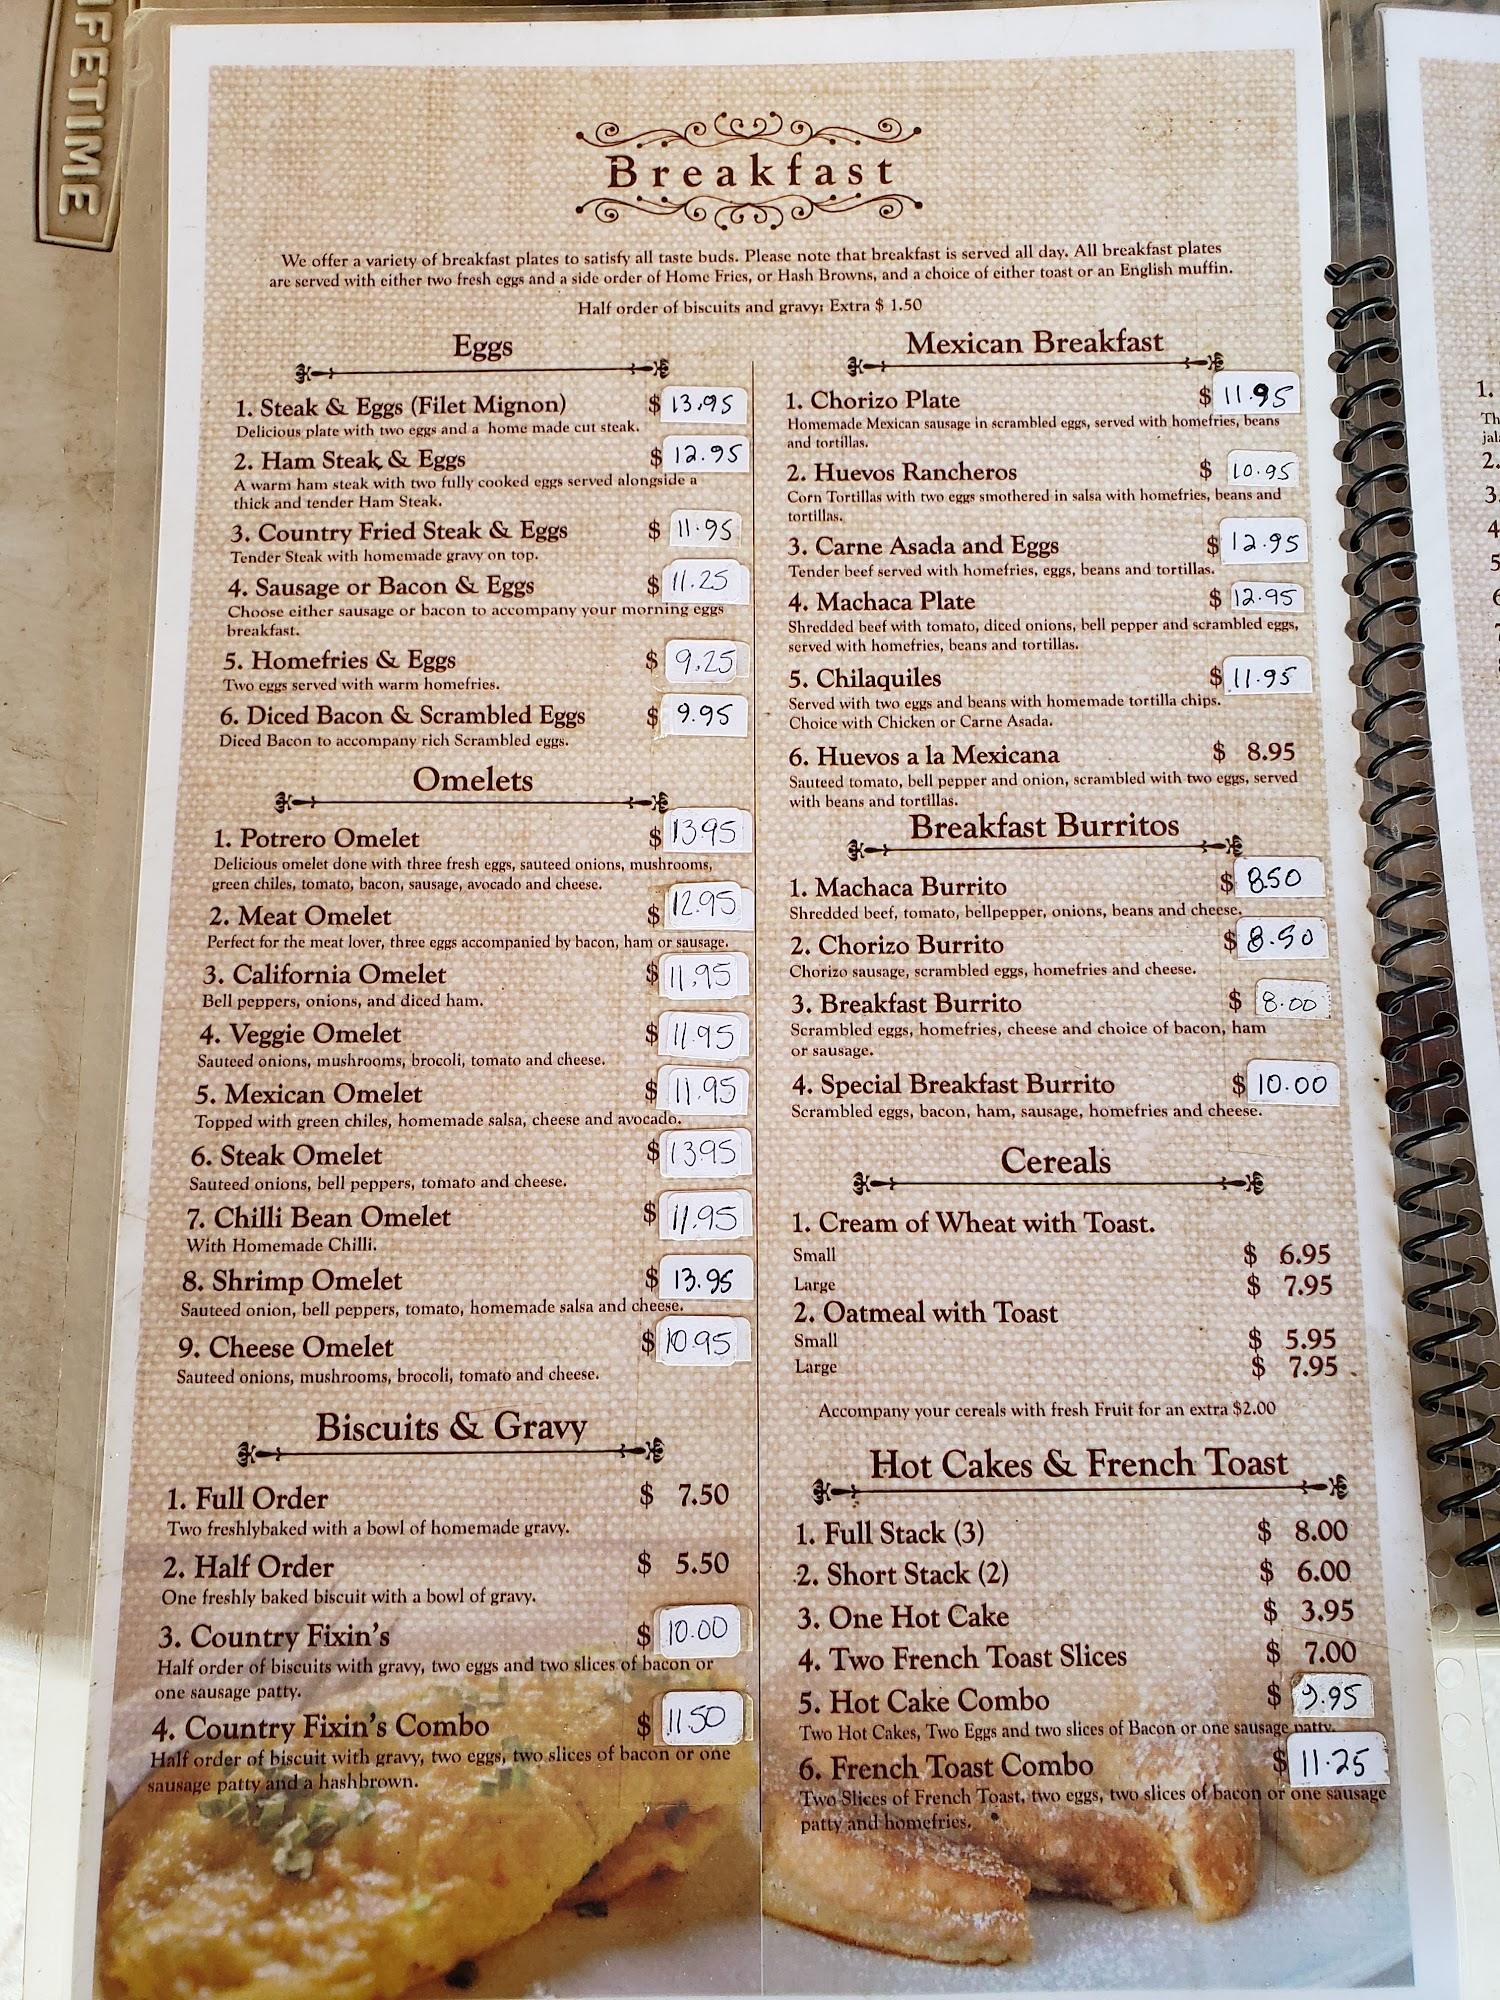 LIFETIME
Breakfast
We offer a variety of breakfast plates to satisfy all taste buds. Please note that breakfast is served all day. All breakfast plates
are served with either two fresh eggs and a side order of Home Fries, or Hash Browns, and a choice of either toast or an English muffin.
Half order of biscuits and gravy: Extra $ 1.50
Eggs
1. Steak & Eggs (Filet Mignon) $ 13.95
Delicious plate with two eggs and a home made cut steak.
2. Ham Steak & Eggs $ 12.95
A warm ham steak with two fully cooked eggs served alongside a
thick and tender Ham Steak.
3. Country Fried Steak & Eggs $ 11.95
Tender Steak with homemade gravy on top.
4. Sausage or Bacon & Eggs $ 11.25
Choose either sausage or bacon to accompany your morning eggs
breakfast.
5. Homefries & Eggs $ 9.25
Two eggs served with warm homefries.
6. Diced Bacon & Scrambled Eggs $ 9.95
Diced Bacon to accompany rich Scrambled eggs.
Omelets
1. Potrero Omelet $ 13.95
Delicious omelet done with three fresh eggs, sauteed onions, mushrooms,
green chiles, tomato, bacon, sausage, avocado and cheese.
2. Meat Omelet $ 12.95
Perfect for the meat lover, three eggs accompanied by bacon, ham or sausage.
3. California Omelet $ 11.95
Bell peppers, onions, and diced ham.
4. Veggie Omelet $ 11.95
Sauteed onions, mushrooms, brocoli, tomato and cheese.
5. Mexican Omelet $ 11.95
Topped with green chiles, homemade salsa, cheese and avocado.
6. Steak Omelet $ 13.95
Sauteed onions, bell peppers, tomato and cheese.
7. Chilli Bean Omelet $ 11.95
With Homemade Chilli.
8. Shrimp Omelet $ 13.95
Sauteed onion, bell peppers, tomato, homemade salsa and cheese.
9. Cheese Omelet $ 10.95
Sauteed onions, mushrooms, brocoli, tomato and cheese.
Biscuits & Gravy
1. Full Order $ 7.50
Two freshlybaked with a bowl of homemade gravy.
2. Half Order $ 5.50
One freshly baked biscuit with a bowl of gravy.
3. Country Fixin's $ 10.00
Half order of biscuits with gravy, two eggs and two slices of bacon or
one sausage patty.
4. Country Fixin's Combo $ 11.50
Half order of biscuit with gravy, two eggs, two slices of bacon or one
sausage patty and a hashbrown.
Mexican Breakfast
1. Chorizo Plate $ 11.95
Homemade Mexican sausage in scrambled eggs, served with homefries, beans
and tortillas.
2. Huevos Rancheros $ 10.95
Corn Tortillas with two eggs smothered in salsa with homefries, beans and
tortillas.
3. Carne Asada and Eggs $ 12.95
Tender beef served with homefries, eggs, beans and tortillas.
4. Machaca Plate $ 12.95
Shredded beef with tomato, diced onions, bell pepper and scrambled eggs,
served with homefries, beans and tortillas.
5. Chilaquiles $ 11.95
Served with two eggs and beans with homemade tortilla chips.
Choice with Chicken or Carne Asada.
6. Huevos a la Mexicana $ 8.95
Sauteed tomato, bell pepper and onion, scrambled with two eggs, served
with beans and tortillas.
Breakfast Burritos
1. Machaca Burrito $ 8.50
Shredded beef, tomato, bellpepper, onions, beans and cheese.
2. Chorizo Burrito $ 8.50
Chorizo sausage, scrambled eggs, homefries and cheese.
3. Breakfast Burrito $ 8.00
Scrambled eggs, homefries, cheese and choice of bacon, ham
or sausage.
4. Special Breakfast Burrito $ 10.00
Scrambled eggs, bacon, ham, sausage, homefries and cheese.
Cereals
1. Cream of Wheat with Toast.
Small $ 6.95
Large $ 7.95
2. Oatmeal with Toast
Small $ 5.95
Large $ 7.95
Accompany your cereals with fresh Fruit for an extra $2.00
Hot Cakes & French Toast
1. Full Stack (3) $ 8.00
2. Short Stack (2) $ 6.00
3. One Hot Cake $ 3.95
4. Two French Toast Slices $ 7.00
5. Hot Cake Combo $ 9.95
Two Hot Cakes, Two Eggs and two slices of Bacon or one sausage patty.
6. French Toast Combo $ 11.25
Two Slices of French Toast, two eggs, two slices of bacon or one sausage
patty and homefries.
1.
Th
jal
2.
3.
4
5